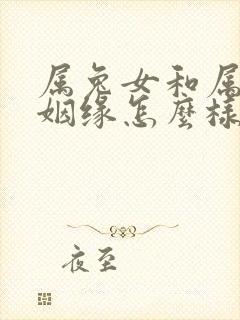 属兔女和属
姻缘怎麽样
夜至